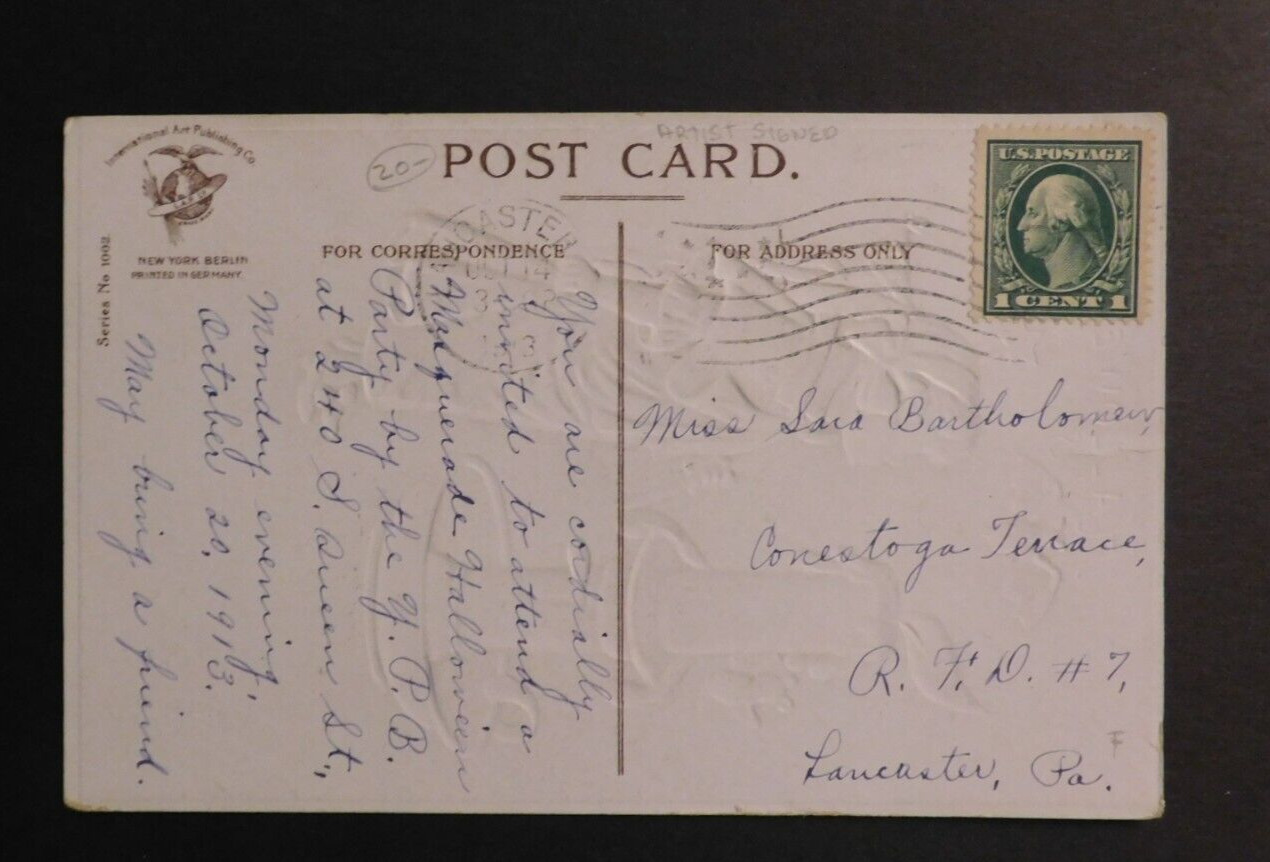 International Art Publishing Co.
NEW YORK BERLIN
PRINTED IN GERMANY
Series No. 1002.
20-
ARTIST SIGNED
POST CARD.
FOR CORRESPONDENCE
FOR ADDRESS ONLY
U.S. POSTAGE
1 CENT 1
CASTER
OCT 14
You are cordially
invited to attend a
Masquerade Halloween
Party by the Y. P. B.
at 240 S. Queen St.,
Monday evening,
October 20, 1913.
May bring a friend.
Miss Sara Bartholomew,
Conestoga Terrace,
R. F. D. # 7,
Lancaster, Pa.
F